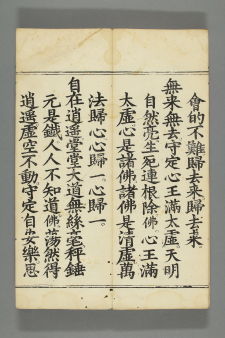 會的不難歸去來歸去來
無來無去守定心王滿太虛天明
自然亮生死連根除佛心王滿
太虛心是諸佛諸佛是清虛萬
法歸心心歸一心歸一。
自在逍遙堂堂大道無絲毫秤錘
元是鐵人人不知道佛蕩然得
逍遙虛空不動守定自安樂恩